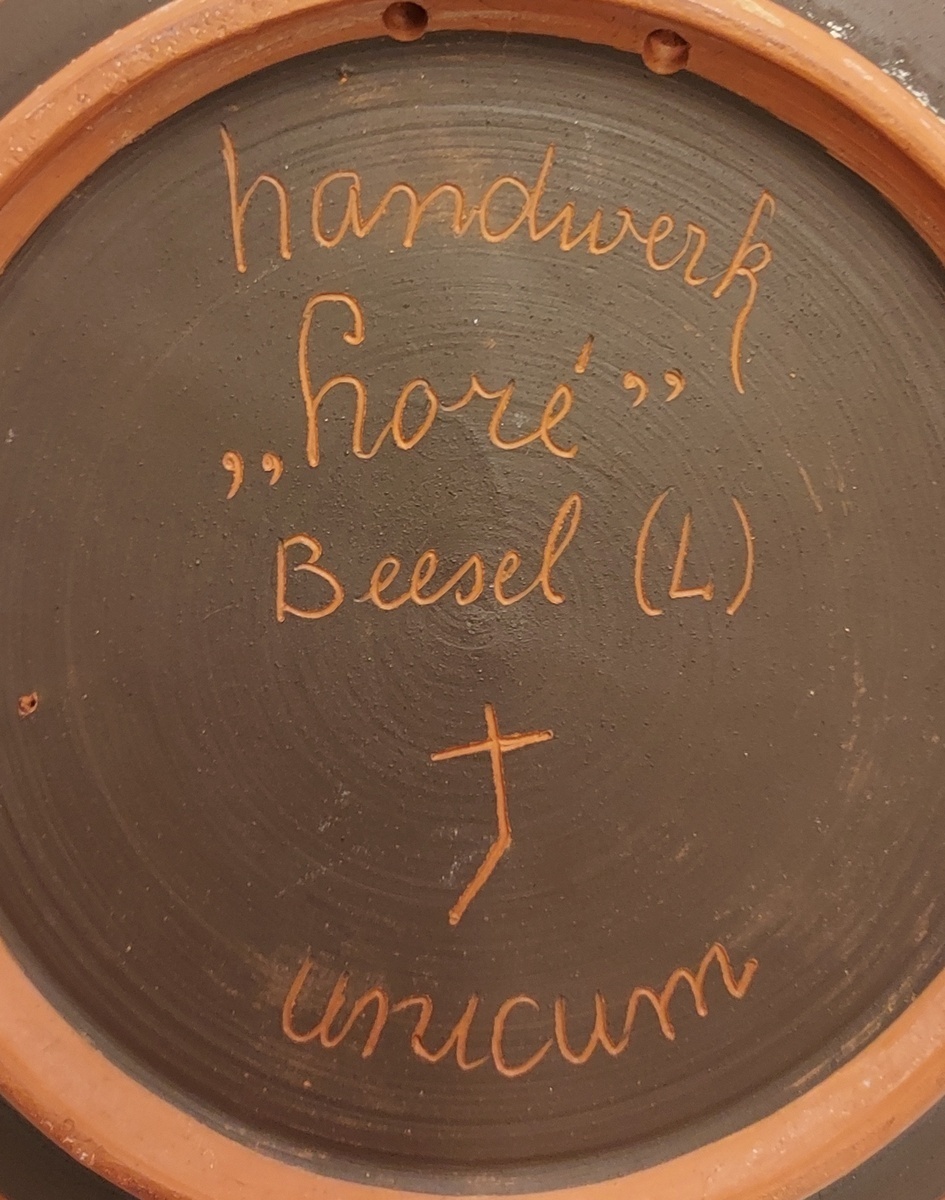 handwerk
„horé”
Beesel (L)
unicum